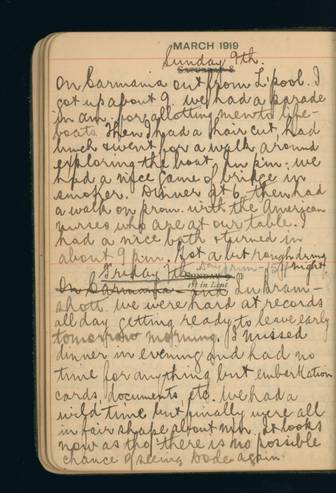 MARCH 1919
Sunday 9th.
SATURDAY 8
On Carmania out from L'pool. I
got up about 9. we had a parade
in am. for allotting men to life-
boats. Then I had a hair cut, had
lunch & went for a walk around
exploring the boat. In p.m. we
had a nice game of bridge in
smoker. Dinner at 6, then had
a walk on prom. with the American
nurses who are at our table. I
had a nice bath & turned in
about 9 pm. Got a bit rough during
night
Friday 7th
SUNDAY 9
1st in Lent
On Carmania - out In Bram-
shott. we were hard at records
all day getting ready to leave early
tomorrow morning. I missed
dinner in evening and had no
time for anything but embarkation
cards, documents, etc. we had a
wild time but finally were all
in fair shape about mn. It looks
now as tho' there is no possible
chance of seeing Dode again.